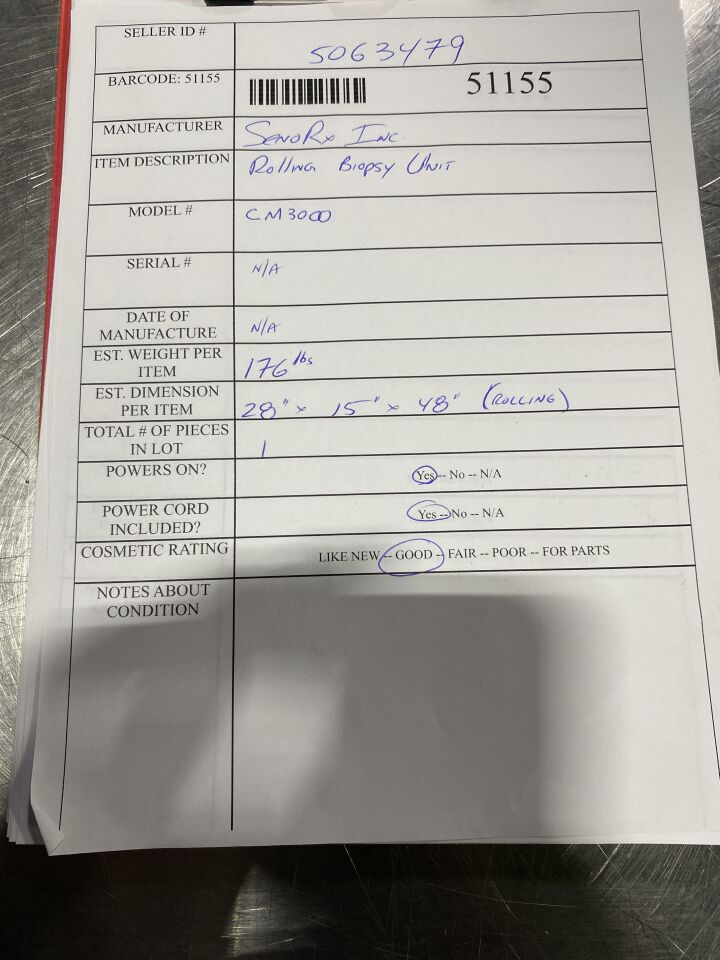 SELLER ID # 5063479
BARCODE: 51155 51155
MANUFACTURER SenoRx Inc.
ITEM DESCRIPTION Rolling Biopsy Unit
MODEL # CM3000
SERIAL # N/A
DATE OF
MANUFACTURE N/A
EST. WEIGHT PER
ITEM 176 lbs
EST. DIMENSION
PER ITEM 28" x 15" x 48" (ROLLING)
TOTAL # OF PIECES
IN LOT 1
POWERS ON? Yes -- No -- N/A
POWER CORD
INCLUDED? Yes -- No -- N/A
COSMETIC RATING LIKE NEW -- GOOD -- FAIR -- POOR -- FOR PARTS
NOTES ABOUT
CONDITION